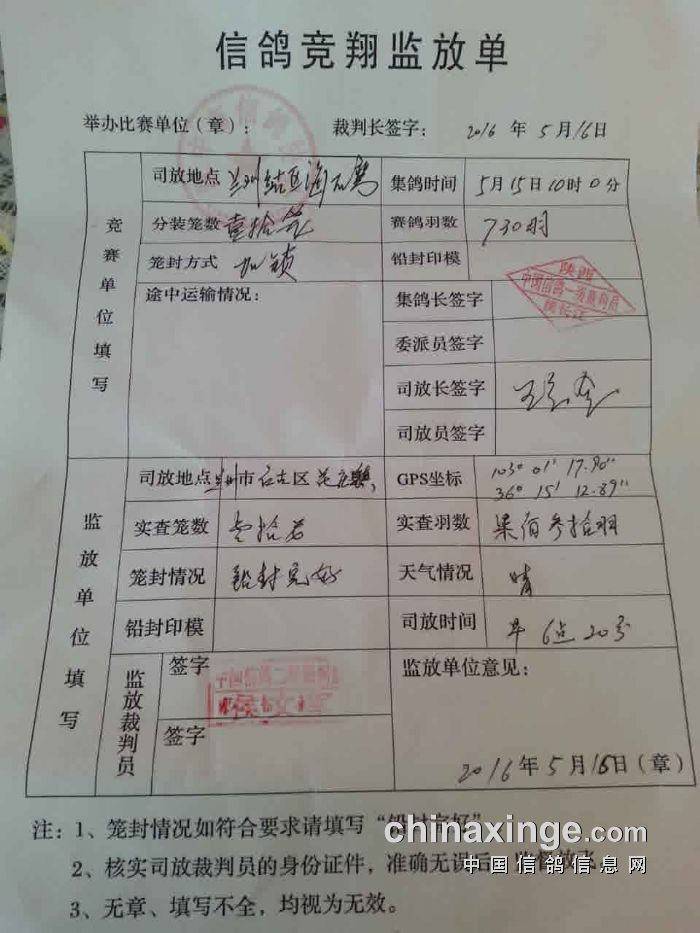 信鸽竞翔监放单
举办比赛单位(章): 裁判长签字: 2016 年 5 月 16 日
竞赛单位填写
司放地点 兰州 集鸽时间 5月15日10时0分
分装笼数 壹拾笼 赛鸽羽数 730羽
笼封方式 加锁 铅封印模
途中运输情况: 集鸽长签字
陕西
中国信鸽一级裁判员
委派员签字
司放长签字
司放员签字
监放单位填写
司放地点 兰州市 区 GPS坐标 103° 01′ 17.90″
36° 15′ 12.89″
实查笼数 壹拾 实查羽数 柒佰参拾羽
笼封情况 铅封完好 天气情况 晴
铅封印模 司放时间 早 6点 20分
监放裁判员
签字 监放单位意见:
中国信鸽二级裁判员
签字
2016 年 5 月 16 日(章)
注: 1、笼封情况如符合要求请填写“铅封完好”
2、核实司放裁判员的身份证件,准确无误后,监督放飞
3、无章、填写不全,均视为无效。
chinaxinge.com
中国信鸽信息网